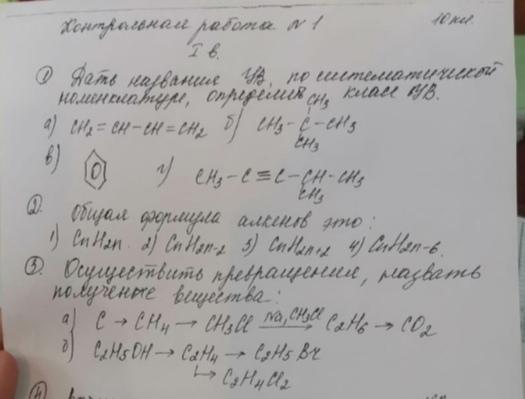 Контрольная работа N 1 10 кл.
I в.
① Дать названия УВ. по систематической
номенклатуре, определить класс УВ.
а) CH2=CH-CH=CH2 б) CH3-C-CH3
CH3
CH3
в) г) CH3-C≡C-CH-CH3
CH3
②. Общая формула алкенов это:
1) CnH2n 2) CnH2n-2 3) CnH2n+2 4) CnH2n-6.
③. Осуществить превращения, назвать
полученые вещества:
а) C → CH4 → CH3Cl Na, CH3Cl → C2H6 → CO2
б) C2H5OH → C2H4 → C2H5Br
↳ C2H4Cl2